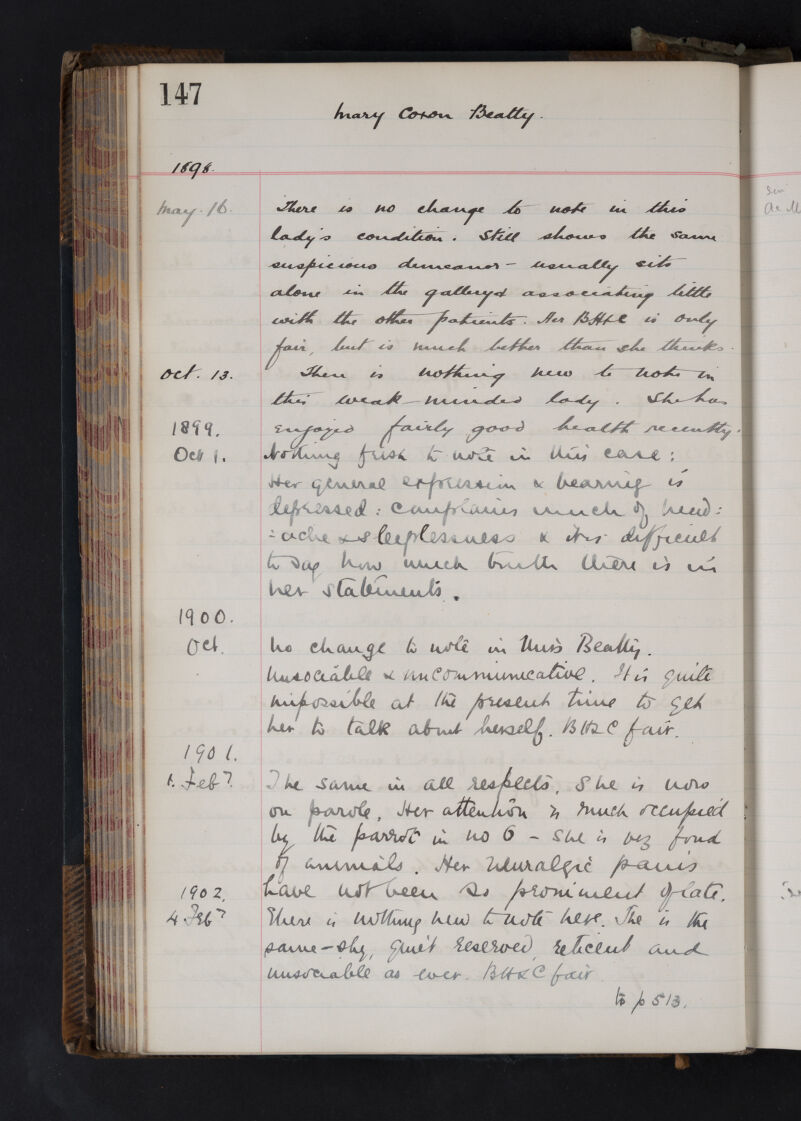 147
Mary Coxon Beatty.
1898.
May. 16. There is no change to note in this
lady's condition. Still shows the same
suspicious demeanor - usually sits
alone in the gallery & associating little
with the other patients. Her BH&C is only
fair, but is much better than she thinks.
Oct. 13. There is nothing new to note in
this weak-minded lady. She has
1899. enjoyed fairly good health recently.
Oct 1. Nothing fresh to note in this case:
Her general expression & bearing is
depressed: complains much of head:
=ache & sleeplessness & it is difficult
to say how much truth there is in
her statements.
1900.
Oct. No change to note in Miss Beatty.
Unsociable & uncommunicative. It is quite
impossible at the present time to get
her to talk about herself. BH&C fair.
1901.
1. Feb? The same in all respects. She is now
on parole. Her attention is much occupied
by the parrot in no 6 - She is very fond
of animals. Her neuralgic pains
1902. have not been so prominent of late.
4 Feb? There is nothing new to note here. She is the
same - shy, quiet reserved, reticent and
unsociable as ever. BH&C fair.
to p 513.